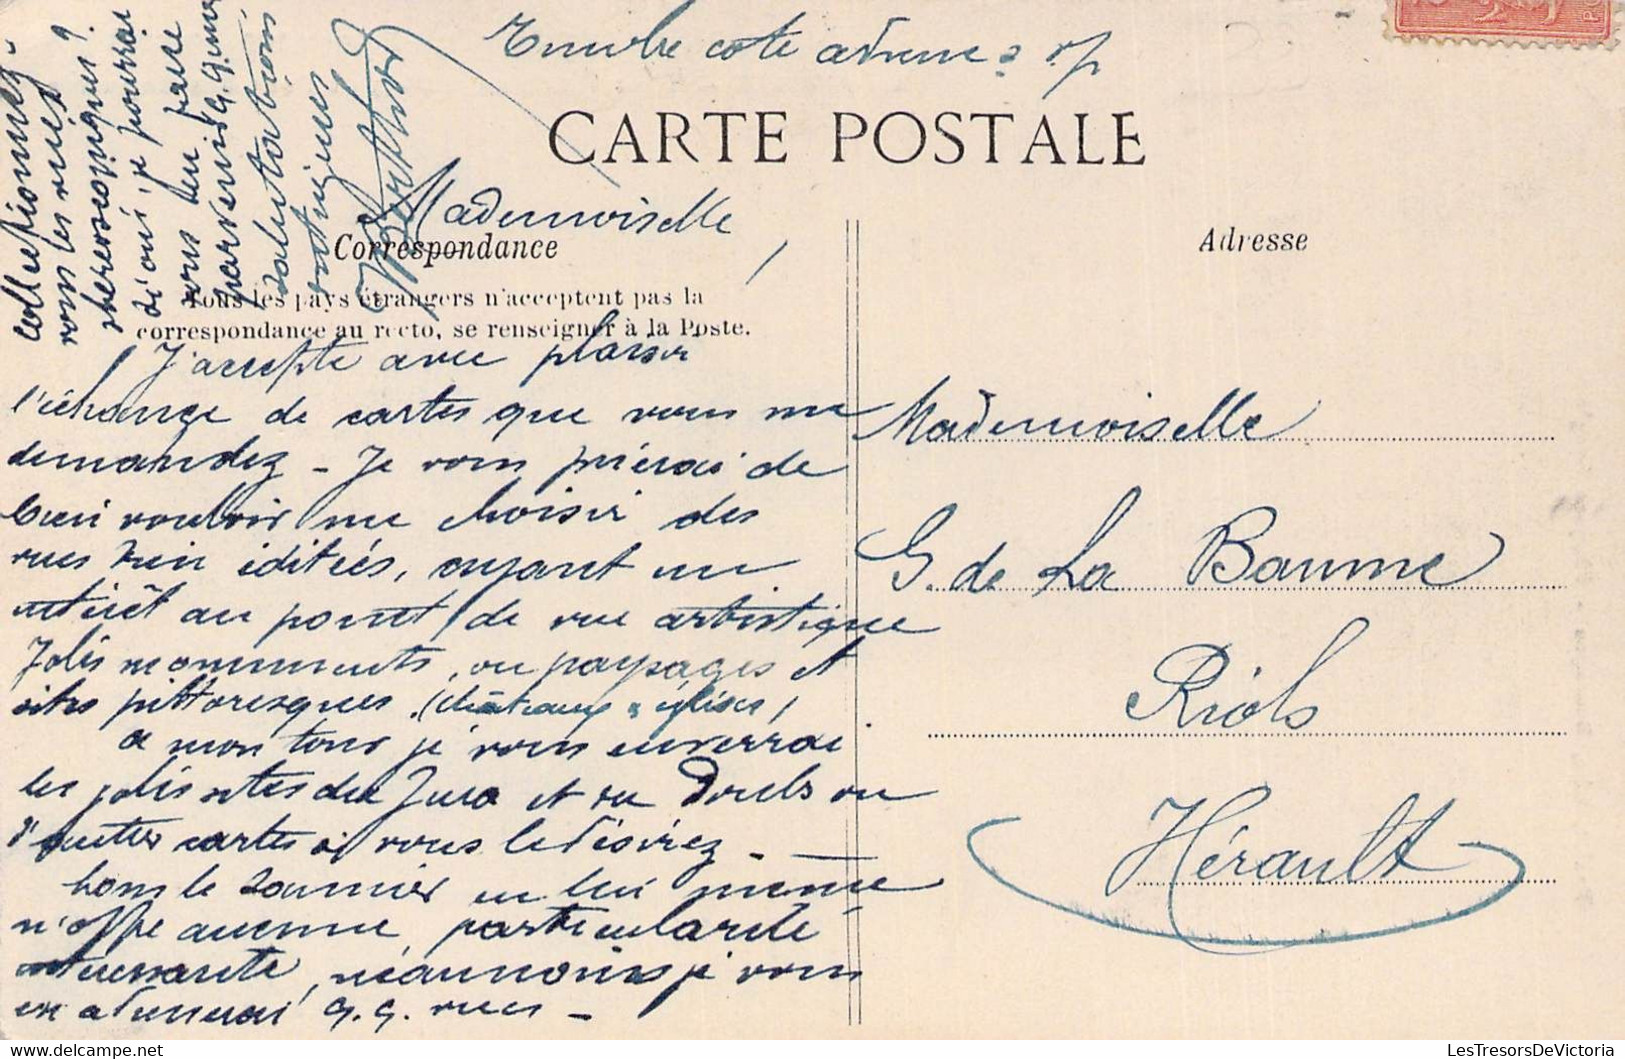 Timbre côté adresse s. v. p.
CARTE POSTALE
Mademoiselle,
Correspondance
Tous les pays étrangers n'acceptent pas la
correspondance au recto, se renseigner à la Poste.
J'accepte avec plaisir
l'échange de cartes que vous me
demandez - Je vous prierai de
bien vouloir me choisir des
vues bien éditées, ayant un
intérêt au point de vue artistique
Jolis monuments, ou paysages et
sites pittoresques, (châteaux & églises)
a mon tour je vous enverrai
les jolis sites du Jura et du Doubs ou
d'autres cartes si vous le désirez -
Lons le Saunier en lui même
n'offre aucune particularité
intéressante, néanmoins je vous
en adresserai q.q. vues -
Collectionnez-
vous les vues
stéréoscopiques ?
Si oui, je pourrai
vous en faire
parvenir q.q. unes
Salutations
Berthod
Adresse
Mademoiselle
G. de La Baume
Riols
Hérault
LesTresorsDeVictoria